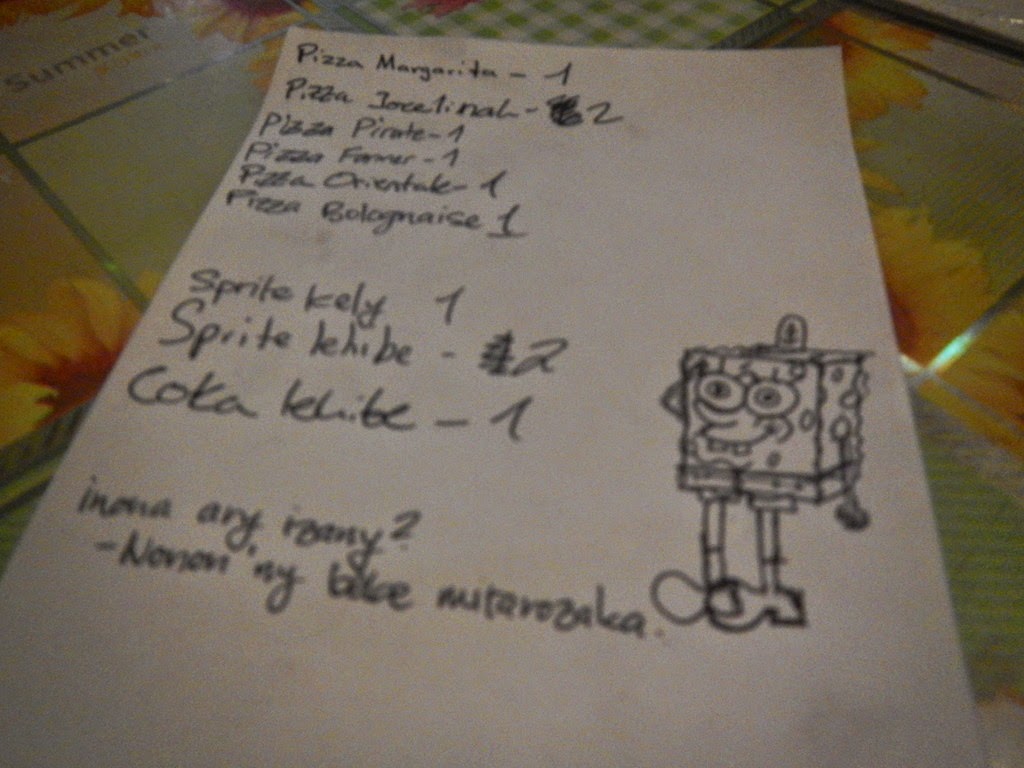 Summer
Pizza Margarita - 1
Pizza - 2
Pizza Pirate - 1
Pizza Farmer - 1
Pizza Orientale - 1
Pizza Bolognaise 1
Sprite kely 1
Sprite lehibe - 2
Coka lehibe - 1
inona ary izany?
- Nonon'ny bebe mitarozaka.